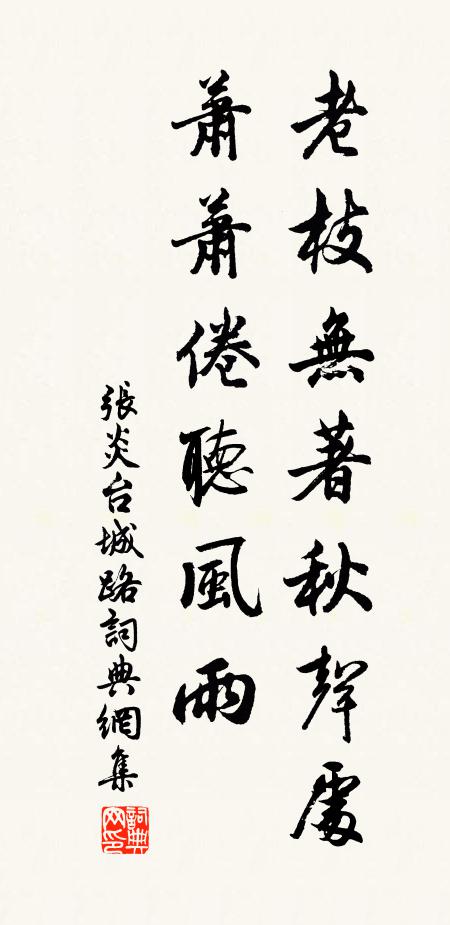 老枝無著秋聲處
蕭蕭倦聽風雨
張炎台城路詞典網集
詞典網印